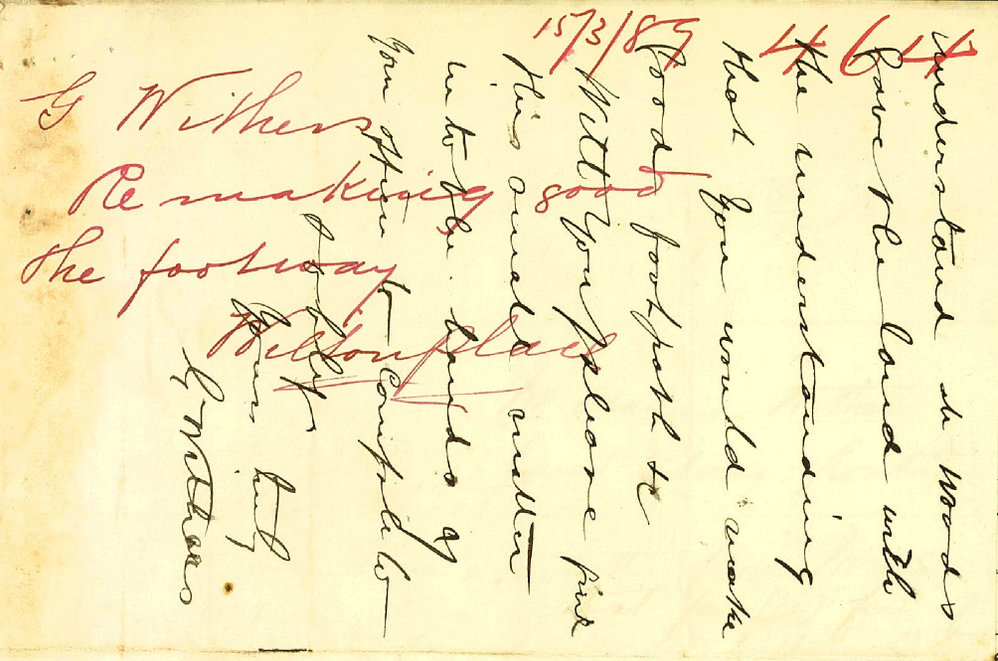 15/3/89
4 6 14
G Withers
Re making good
the footway
Wilton place
understand Mr Woods
gave the land with
the understanding
that you would make
good footpath &c
Will you please put
this small matter
in to the hands of
your to complete
& oblige
Yours truly
G Withers